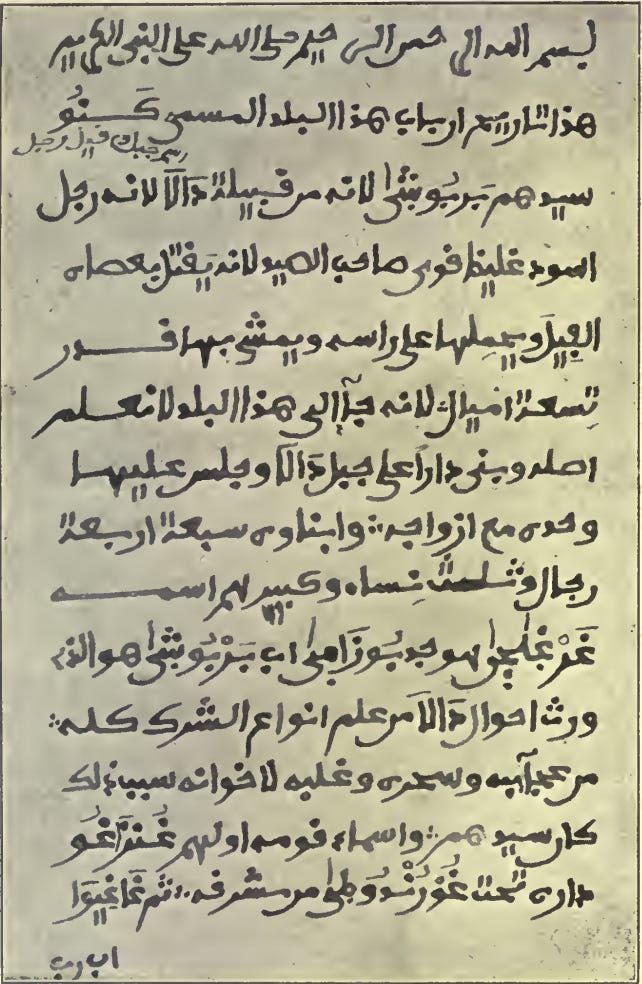 بسم الله الرحمن الرحيم صلى الله على النبي الكريم
هذا تاريخ ارباب هذا البلد المسمى كَنُو
اسم جبل فيه رجل
سيدهم بَرْبُوشَى لانه من قبيلة دَالَا لانه رجل
اسود غليظ قوي صاحب الصيد لانه يَقْتل بعصاه
الفِيلَ ويحمِلها على راسه ويمشي بها قدر
تِسعة اميال لانه جآ إلى هذا البلد لا نعلم
اصله وبنى داراً على جبل دَالَا وجلس عليها
وحده مع ازواجه ∴ وابناوه سبعة اربعة
رجال وثلثة نِساء وكبيرهم اسمه
غَرْغَاجِى هوجد بُوزَامِى اب بَرْبُوشَى هو الذي
ورث احوال دَالَا من علم انواع الشرك كله ∴
من عجآيبه وسحره وغلبه لاخوانه سبب ذلك
كان سيدهم ∴ واسماء قومه اولهم غُنْزَاغُو
داره تحت غُوْرُنْدُوطِى من مشرقه ∴ ثم غَاغِيوَا
اب رب